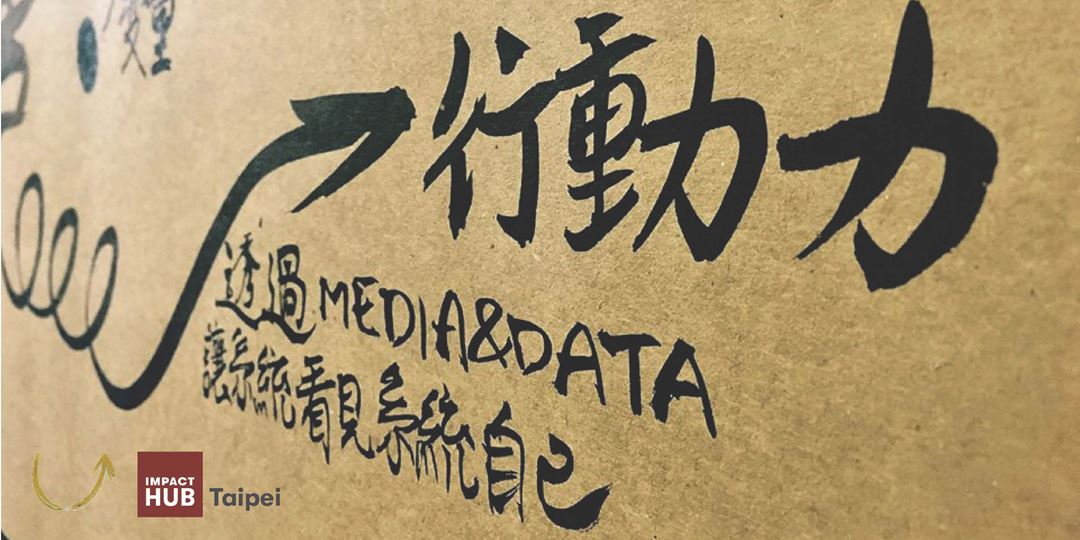 行動力
透過MEDIA&DATA
讓系統看見系統自己
IMPACT
HUB Taipei